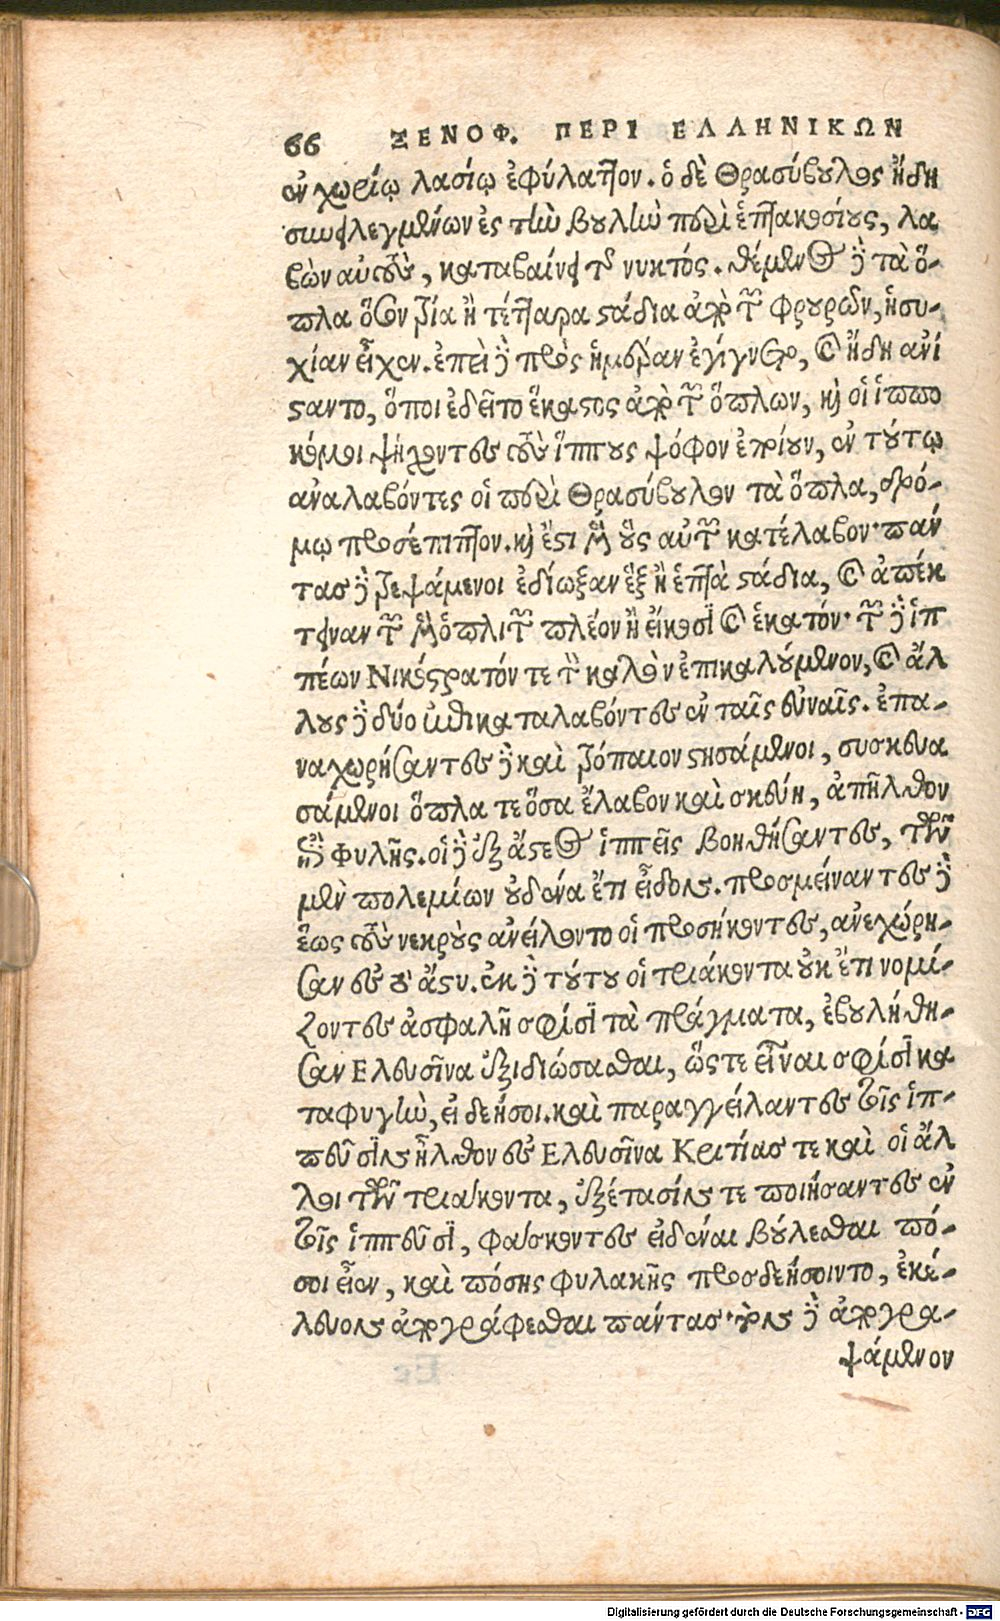 66 ΞΕΝΟΦ. ΠΕΡΙ ΕΛΛΗΝΙΚΩΝ
ἐν χωρίῳ λασίῳ ἐφύλαττον. ὁ δὲ Θρασύβουλος ἤδη
συνειλεγμένων ἐς τὴν βουλὴν περὶ ἑπτακοσίους, λα
βὼν αὐτοὺς, καταβαίνει τῆς νυκτός. θέμενος δὲ τὰ ὅ-
πλα ὅσον τρία ἢ τέτταρα στάδια ἀπὸ τῶν φρουρῶν, ἡσυ-
χίαν εἶχεν. ἐπεὶ δὲ πρὸς ἡμέραν ἐγίγνετο, καὶ ἤδη ἀνί
σαντο, ὅποι ἐδεῖτο ἕκαστος ἀπὸ τῶν ὅπλων, καὶ οἱ ἱππο
κόμοι ψήχοντες τοὺς ἵππους ψόφον ἐποίουν, ἐν τούτῳ
ἀναλαβόντες οἱ περὶ Θρασύβουλον τὰ ὅπλα, δρό-
μῳ προσέπιπτον. καὶ ἔστι μὲν οὓς αὐτῶν κατέλαβον· πάν
τας δὲ τρεψάμενοι ἐδίωξαν ἓξ ἢ ἑπτὰ στάδια, καὶ ἀπέκ
τειναν τῶν μὲν ὁπλιτῶν πλέον ἢ εἴκοσι καὶ ἑκατόν· τῶν δὲ ἱπ
πέων Νικόστρατόν τε τὸν καλὸν ἐπικαλούμενον, καὶ ἄλ
λους δὲ δύο ἔτι καταλαβόντες ἐν ταῖς εὐναῖς. ἐπα-
ναχωρήσαντες δὲ καὶ τρόπαιον στησάμενοι, συσκευα
σάμενοι ὅπλα τε ὅσα ἔλαβον καὶ σκεύη, ἀπῆλθον
ἐπὶ Φυλῆς. οἱ δὲ ἐξ ἄστεος ἱππεῖς βοηθήσαντες, τῶν
μὲν πολεμίων οὐδένα ἔτι εἶδον. προσμείναντες δὲ
ἕως τοὺς νεκροὺς ἀνείλοντο οἱ προσήκοντες, ἀνεχώρη-
σαν ἐς τὸ ἄστυ. ἐκ δὲ τούτου οἱ τριάκοντα οὐκ ἔτι νομί-
ζοντες ἀσφαλῆ σφίσι τὰ πράγματα, ἐβουλήθη-
σαν Ελευσῖνα ἐξιδιώσασθαι, ὥστε εἶναι σφίσι κα
ταφυγὴν, εἰ δεήσοι. καὶ παραγγείλαντες τοῖς ἱπ-
πεῦσιν ἦλθον εἰς Ελευσῖνα Κριτίας τε καὶ οἱ ἄλ
λοι τῶν τριάκοντα, ἐξέτασίν τε ποιήσαντες ἐν
τοῖς ἱππεῦσι, φάσκοντες εἰδέναι βούλεσθαι πό-
σοι εἶεν, καὶ πόσης φυλακῆς προσδεήσοιντο, ἐκέ-
λευον ἀπογράφεσθαι πάντας· τὸν δὲ ἀπογρα-
ψάμενον
Digitalisierung gefördert durch die Deutsche Forschungsgemeinschaft - DFG